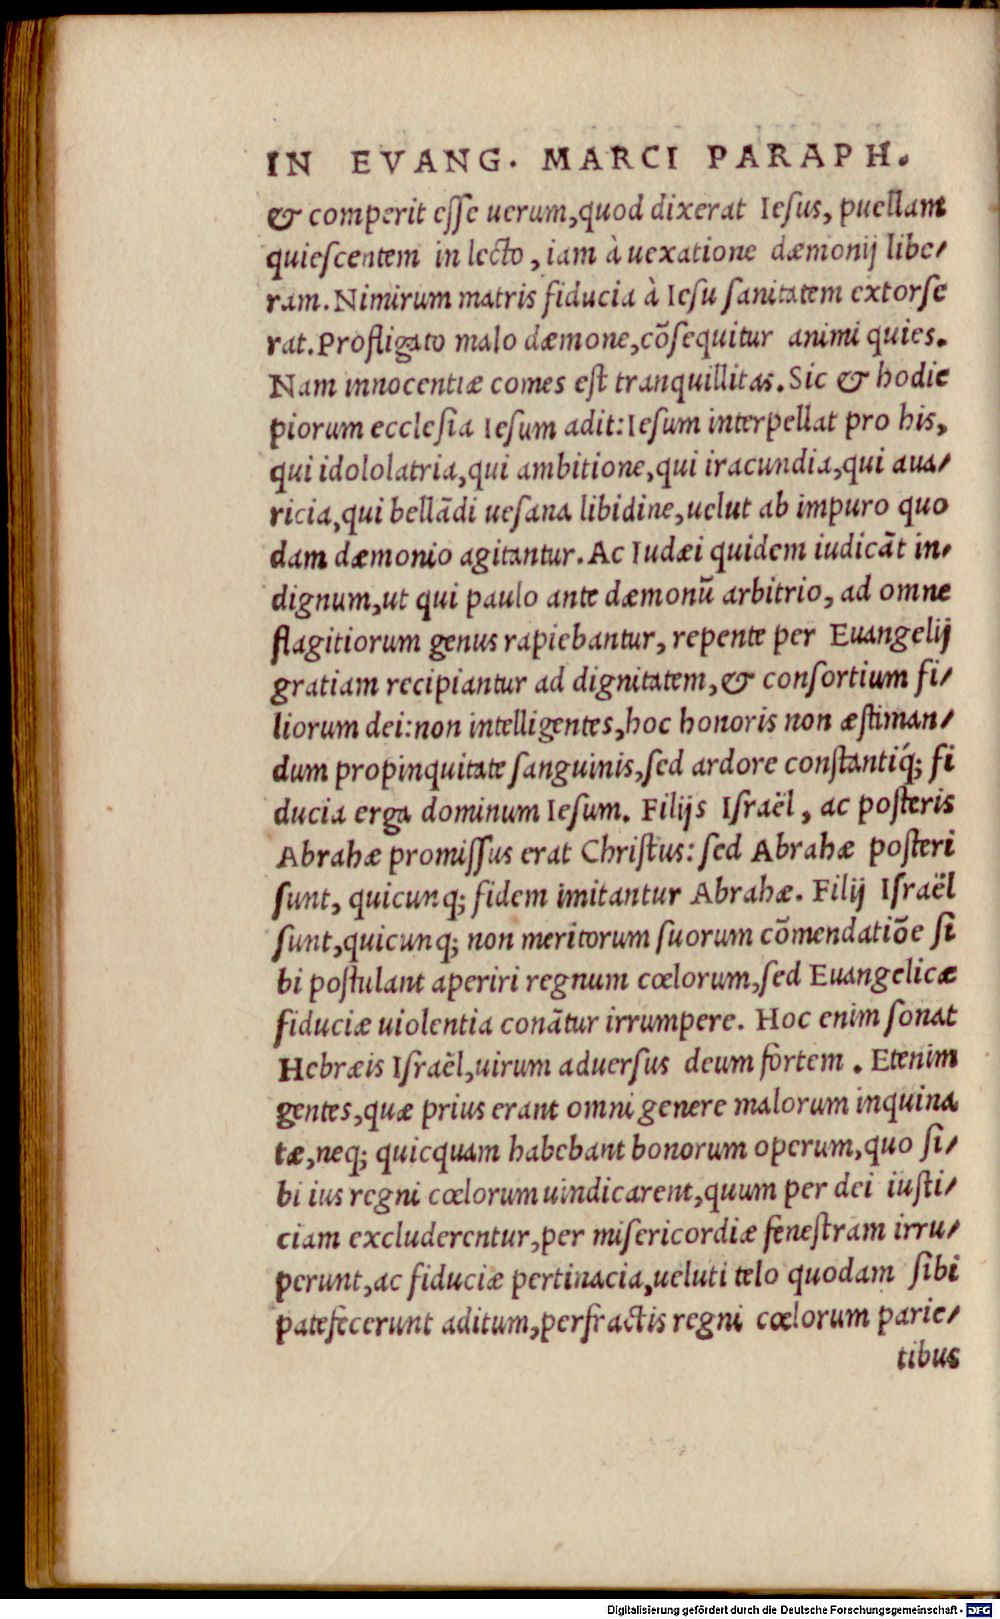 IN EVANG. MARCI PARAPH.
& comperit eſſe uerum,quod dixerat Ieſus, puellam
quieſcentem in lecto, iam à uexatione dæmonij libe/
ram. Nimirum matris fiducia à Ieſu ſanitatem extorſe
rat. Profligato malo dæmone,cõſequitur animi quies.
Nam innocentiæ comes eſt tranquillitas. Sic & hodie
piorum eccleſia Ieſum adit: Ieſum interpellat pro his,
qui idololatria,qui ambitione,qui iracundia,qui aua/
ricia,qui bellãdi ueſana libidine,uelut ab impuro quo
dam dæmonio agitantur. Ac Iudæi quidem iudicãt in/
dignum,ut qui paulo ante dæmonũ arbitrio, ad omne
flagitiorum genus rapiebantur, repente per Euangelij
gratiam recipiantur ad dignitatem,& conſortium fi/
liorum dei: non intelligentes,hoc honoris non æſtiman/
dum propinquitate ſanguinis,ſed ardore conſtantiq́; fi
ducia erga dominum Ieſum. Filijs Iſraël, ac poſteris
Abrahæ promiſſus erat Chriſtus: ſed Abrahæ poſteri
ſunt, quicunq; fidem imitantur Abrahæ. Filij Iſraël
ſunt,quicunq; non meritorum ſuorum cõmendatiõe ſi
bi poſtulant aperiri regnum cœlorum,ſed Euangelicæ
fiduciæ uiolentia conãtur irrumpere. Hoc enim ſonat
Hebræis Iſraël,uirum aduerſus deum fortem. Etenim
gentes,quæ prius erant omni genere malorum inquina
tæ,neq; quicquam habebant bonorum operum,quo ſi/
bi ius regni cœlorum uindicarent,quum per dei iuſti/
ciam excluderentur,per miſericordiæ feneſtram irru/
perunt,ac fiduciæ pertinacia,ueluti telo quodam ſibi
patefecerunt aditum,perfractis regni cœlorum parie/
tibus
Digitalisierung gefördert durch die Deutsche Forschungsgemeinschaft - DFG